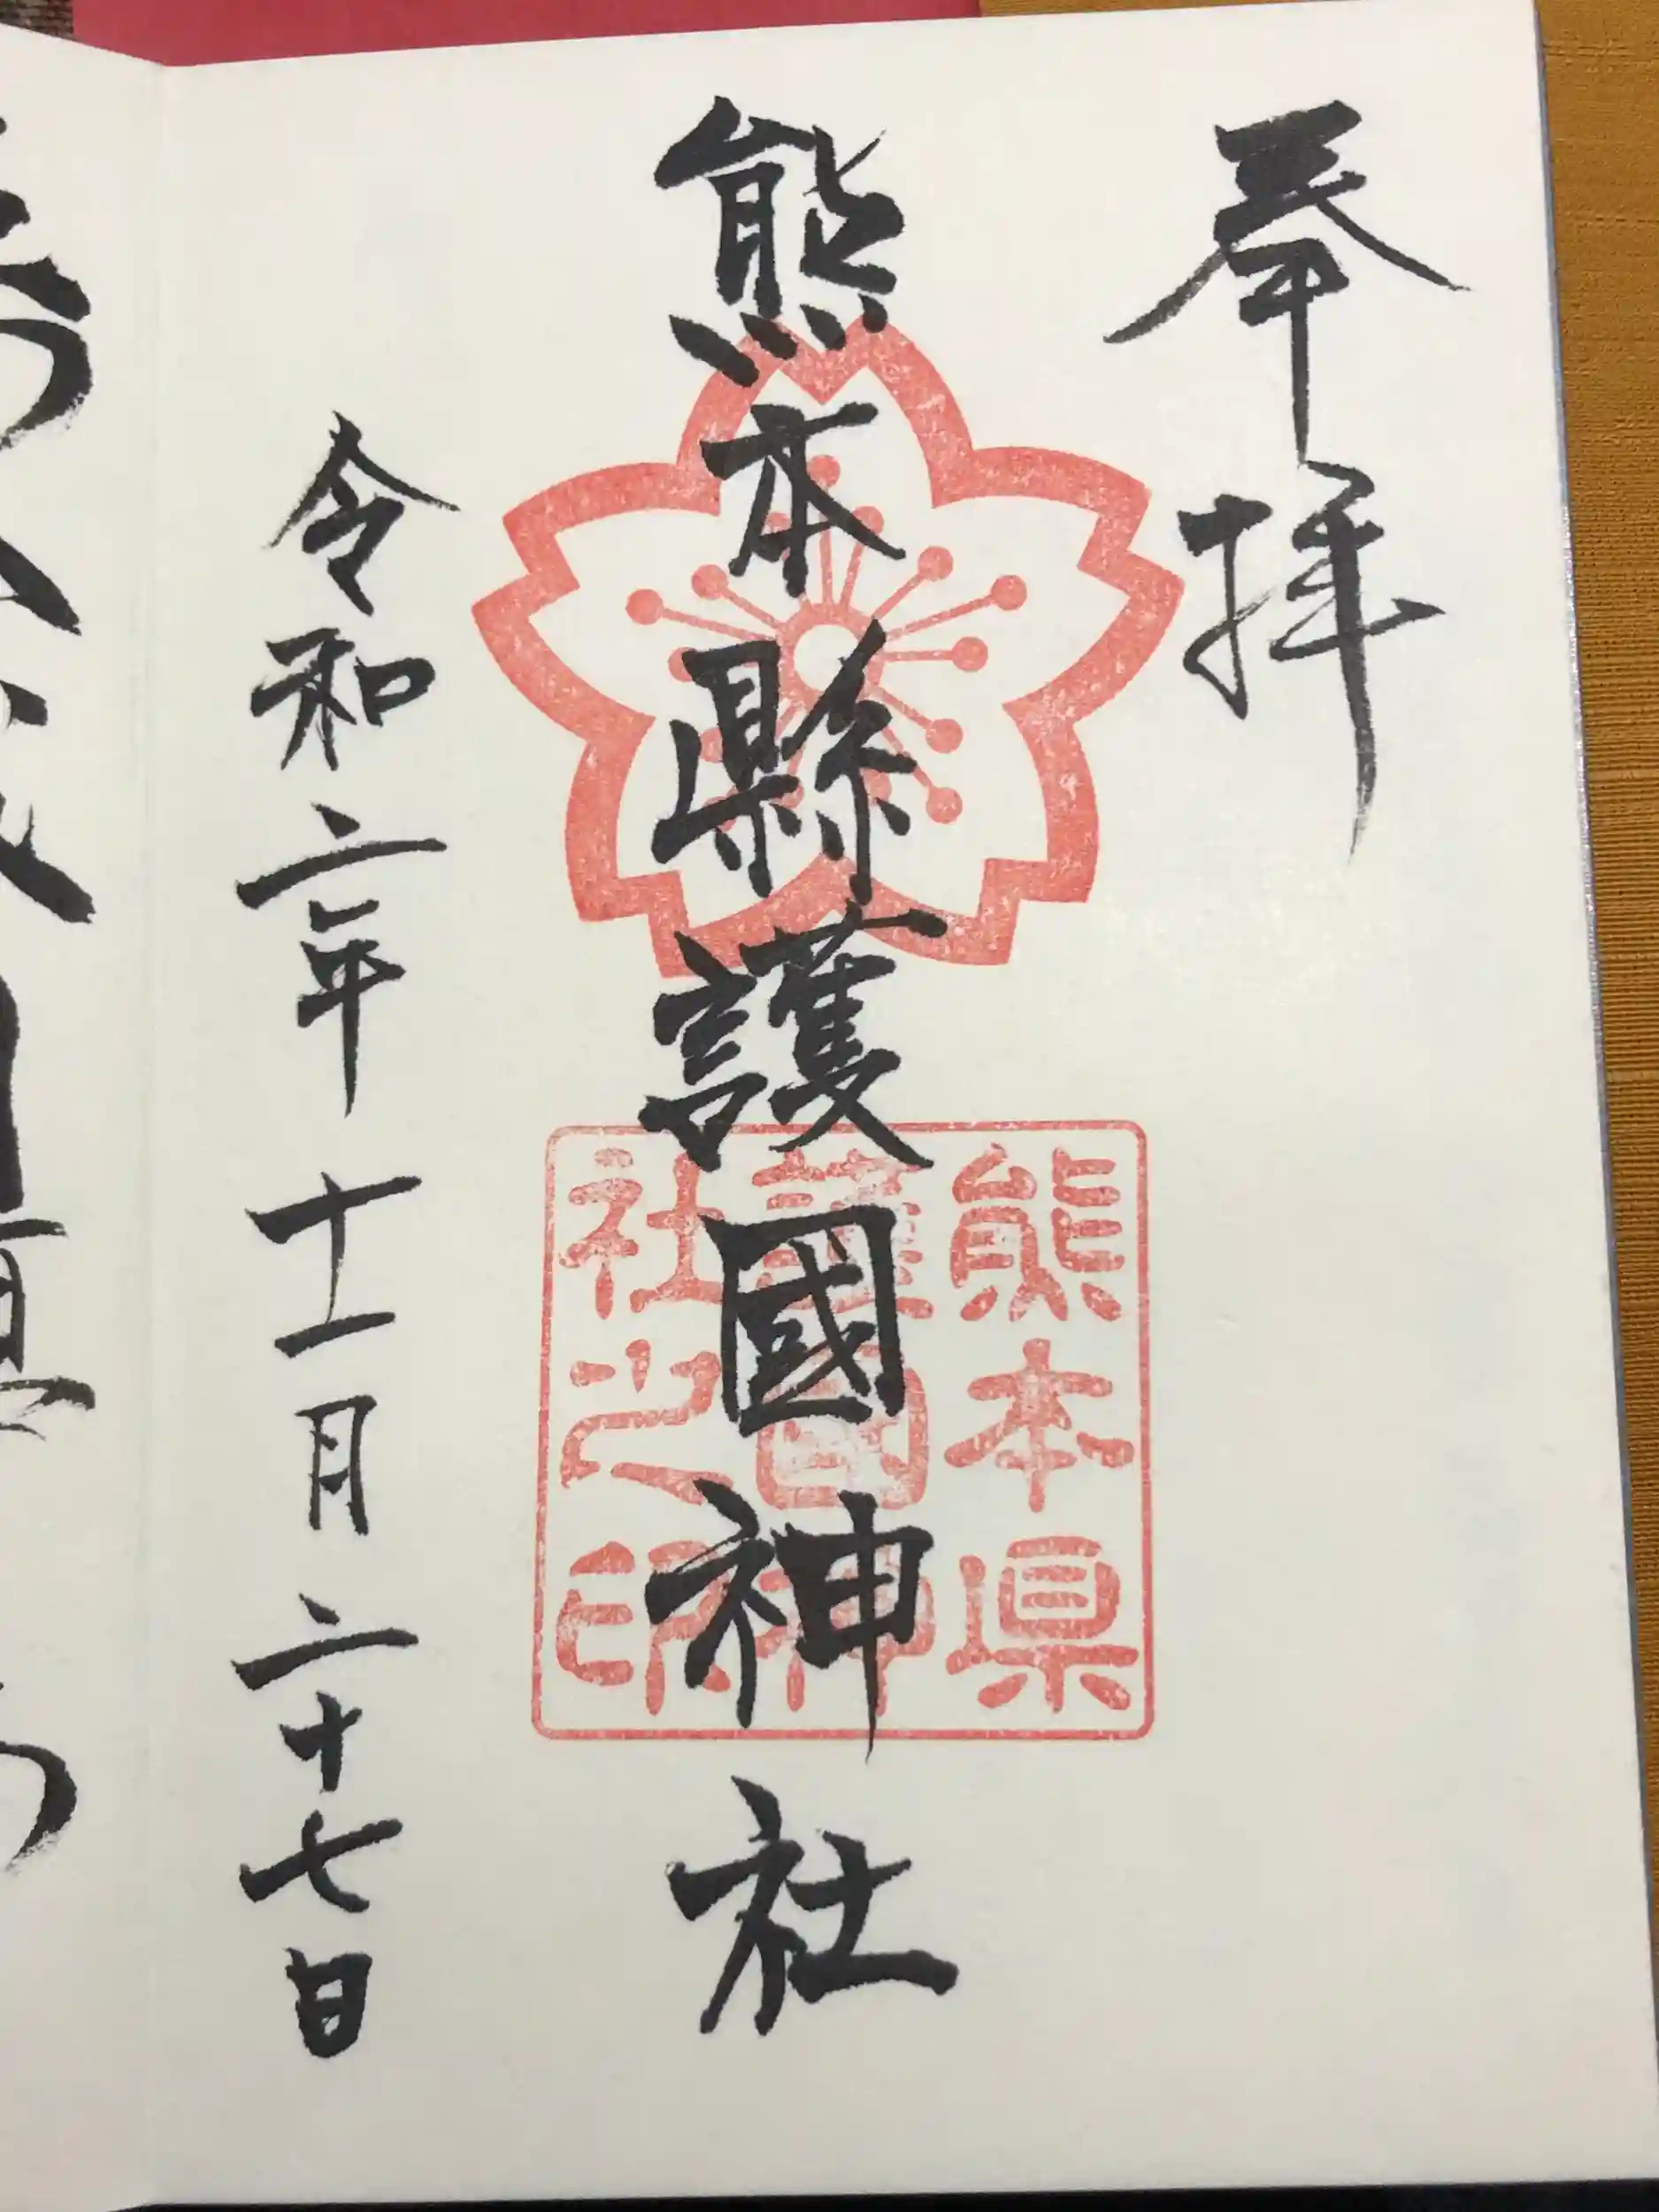 奉拝
熊本縣護國神社
熊本県
護国神
社之印
令和二年十一月二十七日